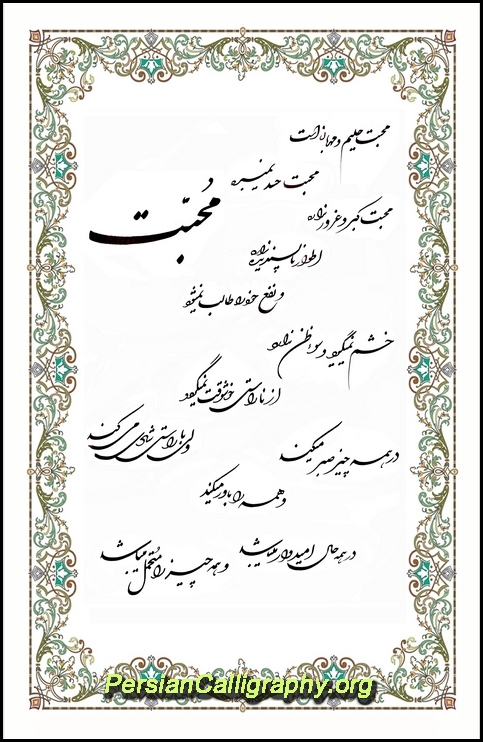 محبت حلیم و مهربان است
محبت حسد نمیبرد
محبت
محبت کبر و غرور ندارد
اطوار ناپسندیده ندارد
و نفع خود را طالب نمیشود
خشم نمیگیرد و سوءظن ندارد
از ناراستی خوشوقت نمیگردد
ولی با راستی شادی می کند
در همه چیز صبر میکند
و همه را باور میکند
در همه حال امیدوار میباشد
و همه چیز را متحمل میباشد
PersianCalligraphy.org